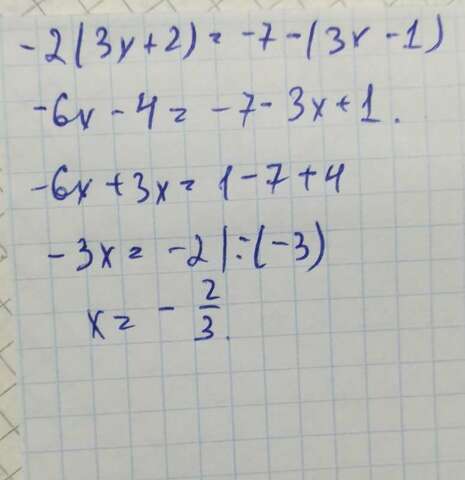 -2(3x+2)=-7-(3x-1)
-6x-4=-7-3x+1.
-6x+3x=1-7+4
-3x=-2|:(-3)
x=-2/3.